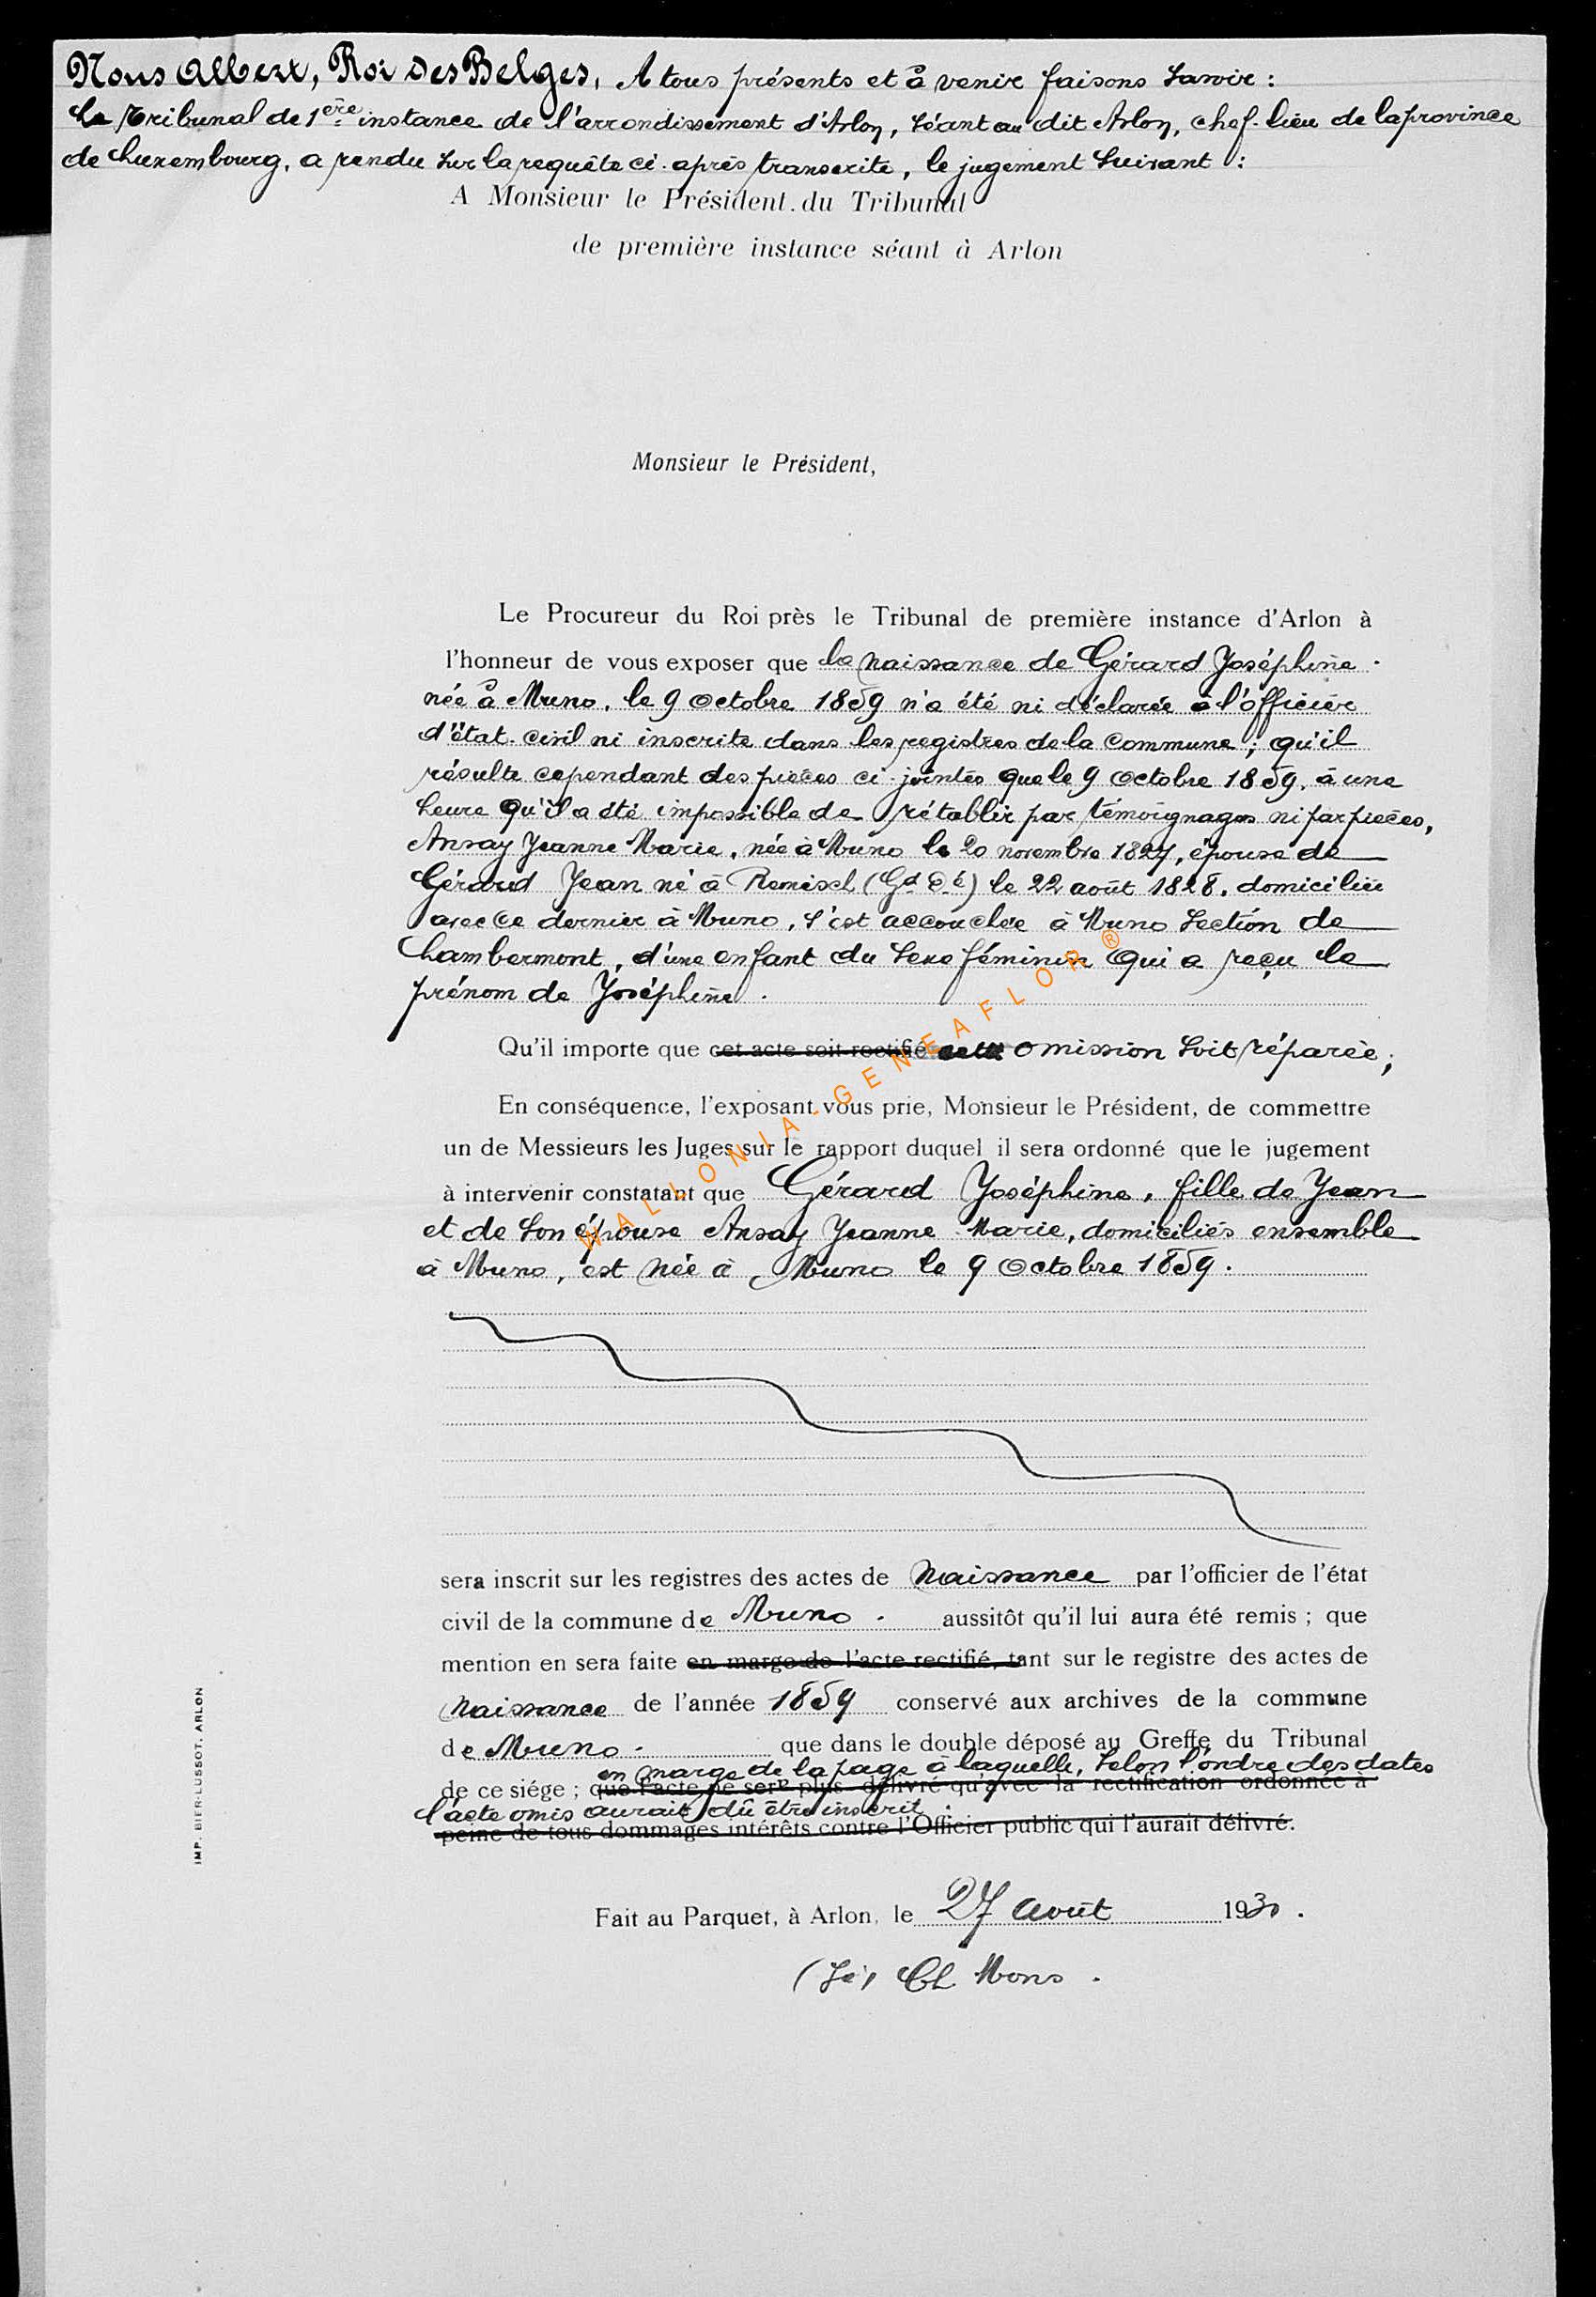 Nous Albert, Roi des Belges, A tous présents et à venir faisons savoir :
Le Tribunal de 1ère instance de l'arrondissement d'Arlon, séant au dit Arlon, chef-lieu de la province
de Luxembourg, a rendu sur la requête ci-après transcrite, le jugement suivant :
A Monsieur le Président du Tribunal
de première instance séant à Arlon
Monsieur le Président,
Le Procureur du Roi près le Tribunal de première instance d'Arlon à
l'honneur de vous exposer que la naissance de Gérard Joséphine
née à Muno, le 9 octobre 1859 n'a été ni déclarée à l'officier
d'état-civil ni inscrite dans les registres de la commune ; qu'il
résulte cependant des pièces ci-jointes que le 9 octobre 1859, à une
heure qu'il a été impossible de rétablir par témoignages ni par pièces,
Ansay Jeanne Marie, née à Muno le 20 novembre 1827, épouse de
Gérard Jean né à Remisch (Gd Dé) le 22 août 1828, domiciliée
avec ce dernier à Muno, s'est accouchée à Muno section de
Chambermont, d'une enfant du sexe féminin qui a reçu le
prénom de Joséphine.
Qu'il importe que cet acte soit rectifié cette omission soit réparée ;
En conséquence, l'exposant vous prie, Monsieur le Président, de commettre
un de Messieurs les Juges sur le rapport duquel il sera ordonné que le jugement
à intervenir constatant que Gérard Joséphine, fille de Jean
et de son épouse Ansay Jeanne Marie, domiciliés ensemble
à Muno, est née à Muno le 9 octobre 1859.
sera inscrit sur les registres des actes de naissance par l'officier de l'état
civil de la commune de Muno. aussitôt qu'il lui aura été remis ; que
mention en sera faite en marge de l'acte rectifié, tant sur le registre des actes de
naissance de l'année 1859 conservé aux archives de la commune
de Muno. que dans le double déposé au Greffe du Tribunal
en marge de la page à laquelle, selon l'ordre des dates
de ce siége ; que l'acte ne sera plus délivré qu'avec la rectification ordonnée à
l'acte omis aurait dû être inscrit.
peine de tous dommages intérêts contre l'Officier public qui l'aurait délivré.
Fait au Parquet, à Arlon, le 27 août 1930.
(Sé) Ch Mons.
IMP. BIER-LUSSOT, ARLON
WALLONIA-GENEAFLOR ®